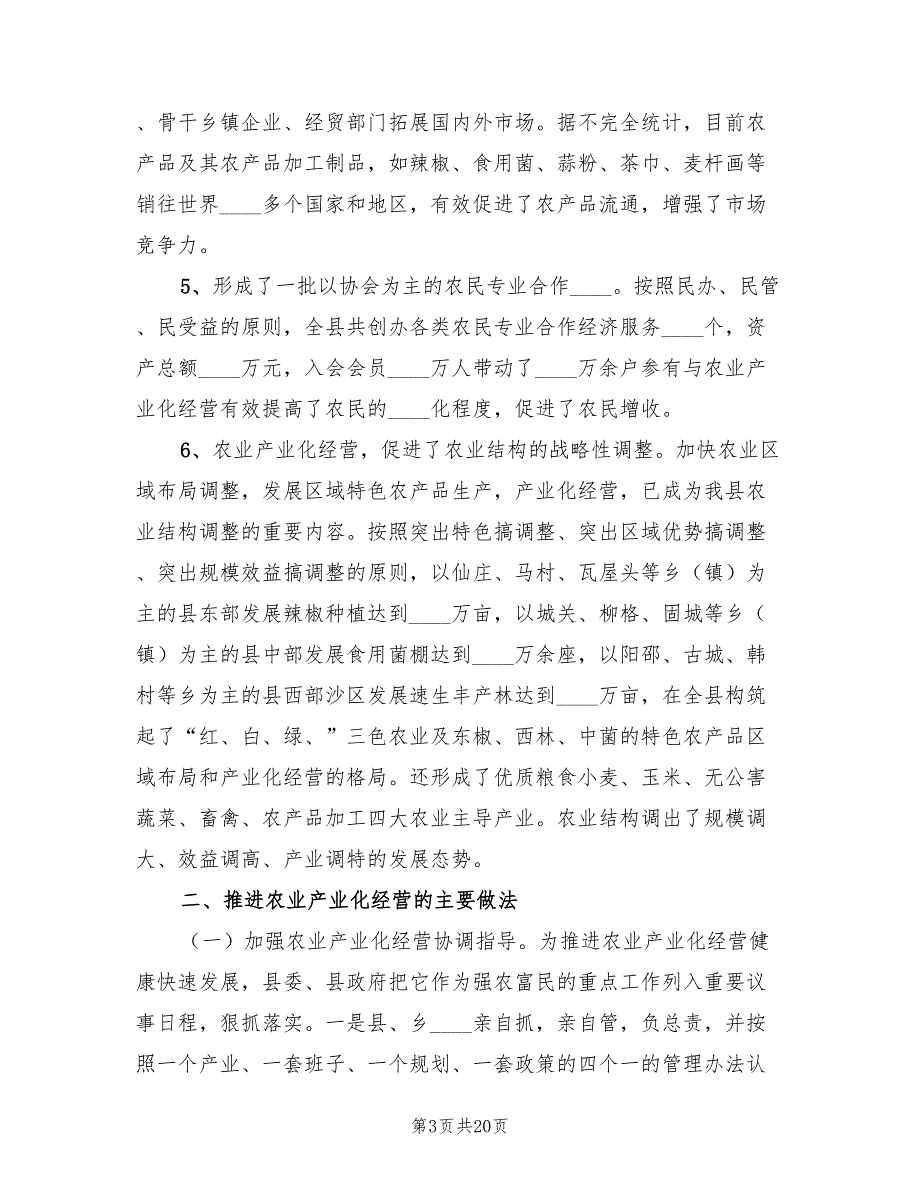 、骨干乡镇企业、经贸部门拓展国内外市场。据不完全统计，目前农
产品及其农产品加工制品，如辣椒、食用菌、蒜粉、茶巾、麦杆画等
销往世界____多个国家和地区，有效促进了农产品流通，增强了市场
竞争力。
5、形成了一批以协会为主的农民专业合作____。按照民办、民管
、民受益的原则，全县共创办各类农民专业合作经济服务____个，资
产总额____万元，入会会员____万人带动了____万余户参有与农业产
业化经营有效提高了农民的____化程度，促进了农民增收。
6、农业产业化经营，促进了农业结构的战略性调整。加快农业区
域布局调整，发展区域特色农产品生产，产业化经营，已成为我县农
业结构调整的重要内容。按照突出特色搞调整、突出区域优势搞调整
、突出规模效益搞调整的原则，以仙庄、马村、瓦屋头等乡（镇）为
主的县东部发展辣椒种植达到____万亩，以城关、柳格、固城等乡（
镇）为主的县中部发展食用菌棚达到____万余座，以阳邵、古城、韩
村等乡为主的县西部沙区发展速生丰产林达到____万亩，在全县构筑
起了“红、白、绿、”三色农业及东椒、西林、中菌的特色农产品区
域布局和产业化经营的格局。还形成了优质粮食小麦、玉米、无公害
蔬菜、畜禽、农产品加工四大农业主导产业。农业结构调出了规模调
大、效益调高、产业调特的发展态势。
二、推进农业产业化经营的主要做法
（一）加强农业产业化经营协调指导。为推进农业产业化经营健
康快速发展，县委、县政府把它作为强农富民的重点工作列入重要议
事日程，狠抓落实。一是县、乡____亲自抓，亲自管，负总责，并按
照一个产业、一套班子、一个规划、一套政策的四个一的管理办法认
第3页共20页